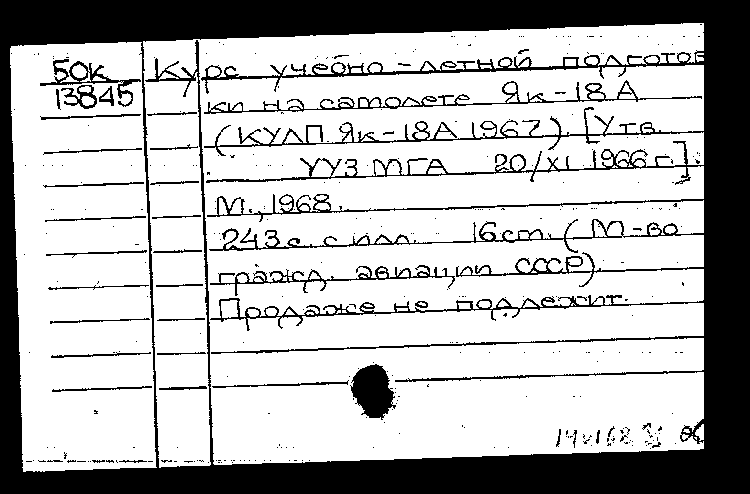 БОК Курс учебно-летной подготов
13845 ки на самолете Як-18А
(КУЛП Як-18А 1967). [Утв.
УУЗ МГА 20/XI 1966г.].
М., 1968.
243 с. с илл. 16см. (М-во
гражд. авиации СССР).
Продаже не подлежит.